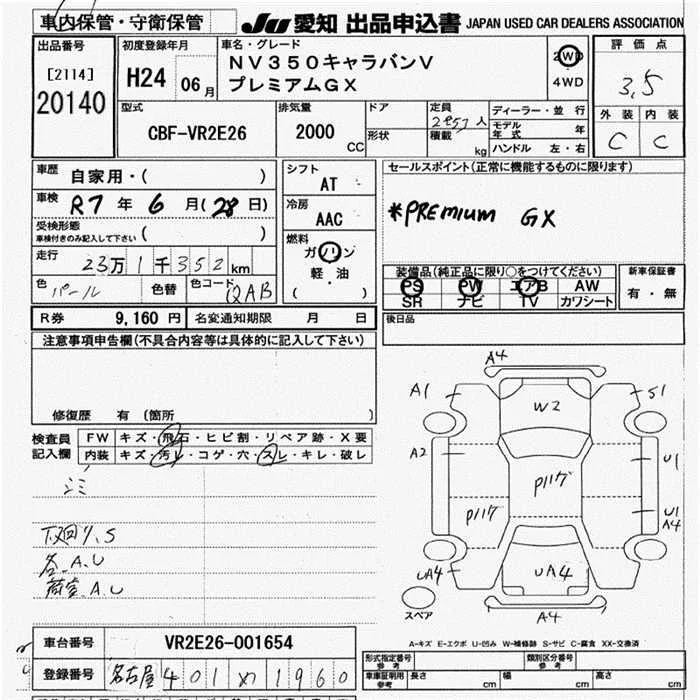 車内保管・守衛保管
JU 愛知 出品申込書 JAPAN USED CAR DEALERS ASSOCIATION
出品番号
[2114]
20140
初度登録年月
H24 06 月
車名・グレード
NV350キャラバンV
プレミアムGX
2WD
4WD
評価点
3.5
外装 内装
C C
型式
CBF-VR2E26
排気量
2000 CC
ドア
形状
定員
人
積載
kg
ディーラー・並行
モデル年式 年
ハンドル 左・右
車歴
自家用・( )
車検
R7 年 6 月(28 日)
受検形態
車検付きのみ記入して下さい ( )
走行
23万1千352km
色 パール 色替 色コード QAB
シフト
AT
冷房
AAC
燃料
ガソリン
軽・油
( )
セールスポイント(正常に機能するものに限ります)
*PREMIUM GX
装備品(純正品に限り○をつけてください)
PS PW エアB AW
SR ナビ TV カワシート
新車保証書
有・無
R券 9,160 円 名変通知期限 月 日
後日品
注意事項申告欄(不具合内容等は具体的に記入して下さい)
修復歴 有 (箇所 )
検査員
記入欄
FW キズ・飛石・ヒビ割・リペア跡・X要
内装 キズ・汚レ・コゲ・穴・スレ・キレ・破レ
シミ
下廻り、S
各、A、U
荷室、A、U
A4
A1
W2
S1
A2
U1
P117"
P117"
U1
A4
UA4
UA4
スペア
A4
A-キズ E-エクボ U-凹み W-補修跡 S-サビ C-腐食 XX-交換済
車台番号 VR2E26-001654
登録番号 名古屋 401 め 1960
形式指定番号
参考
類別区分番号
参考
車庫証明用
参考
長さ cm 幅 cm 高さ cm